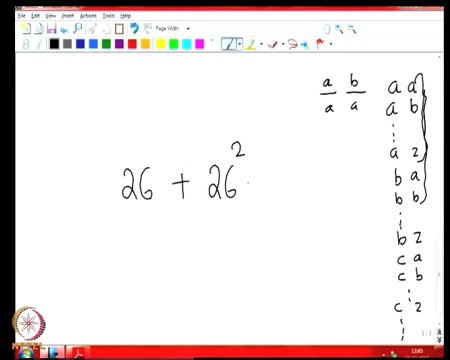 File Edit View Insert Actions Tools Help
Page Width
a b a a
a a a b
⋮
a z
b a
26 + 26²
b b
⋮
b z
c a
c b
⋮
c z
⋮
12:45